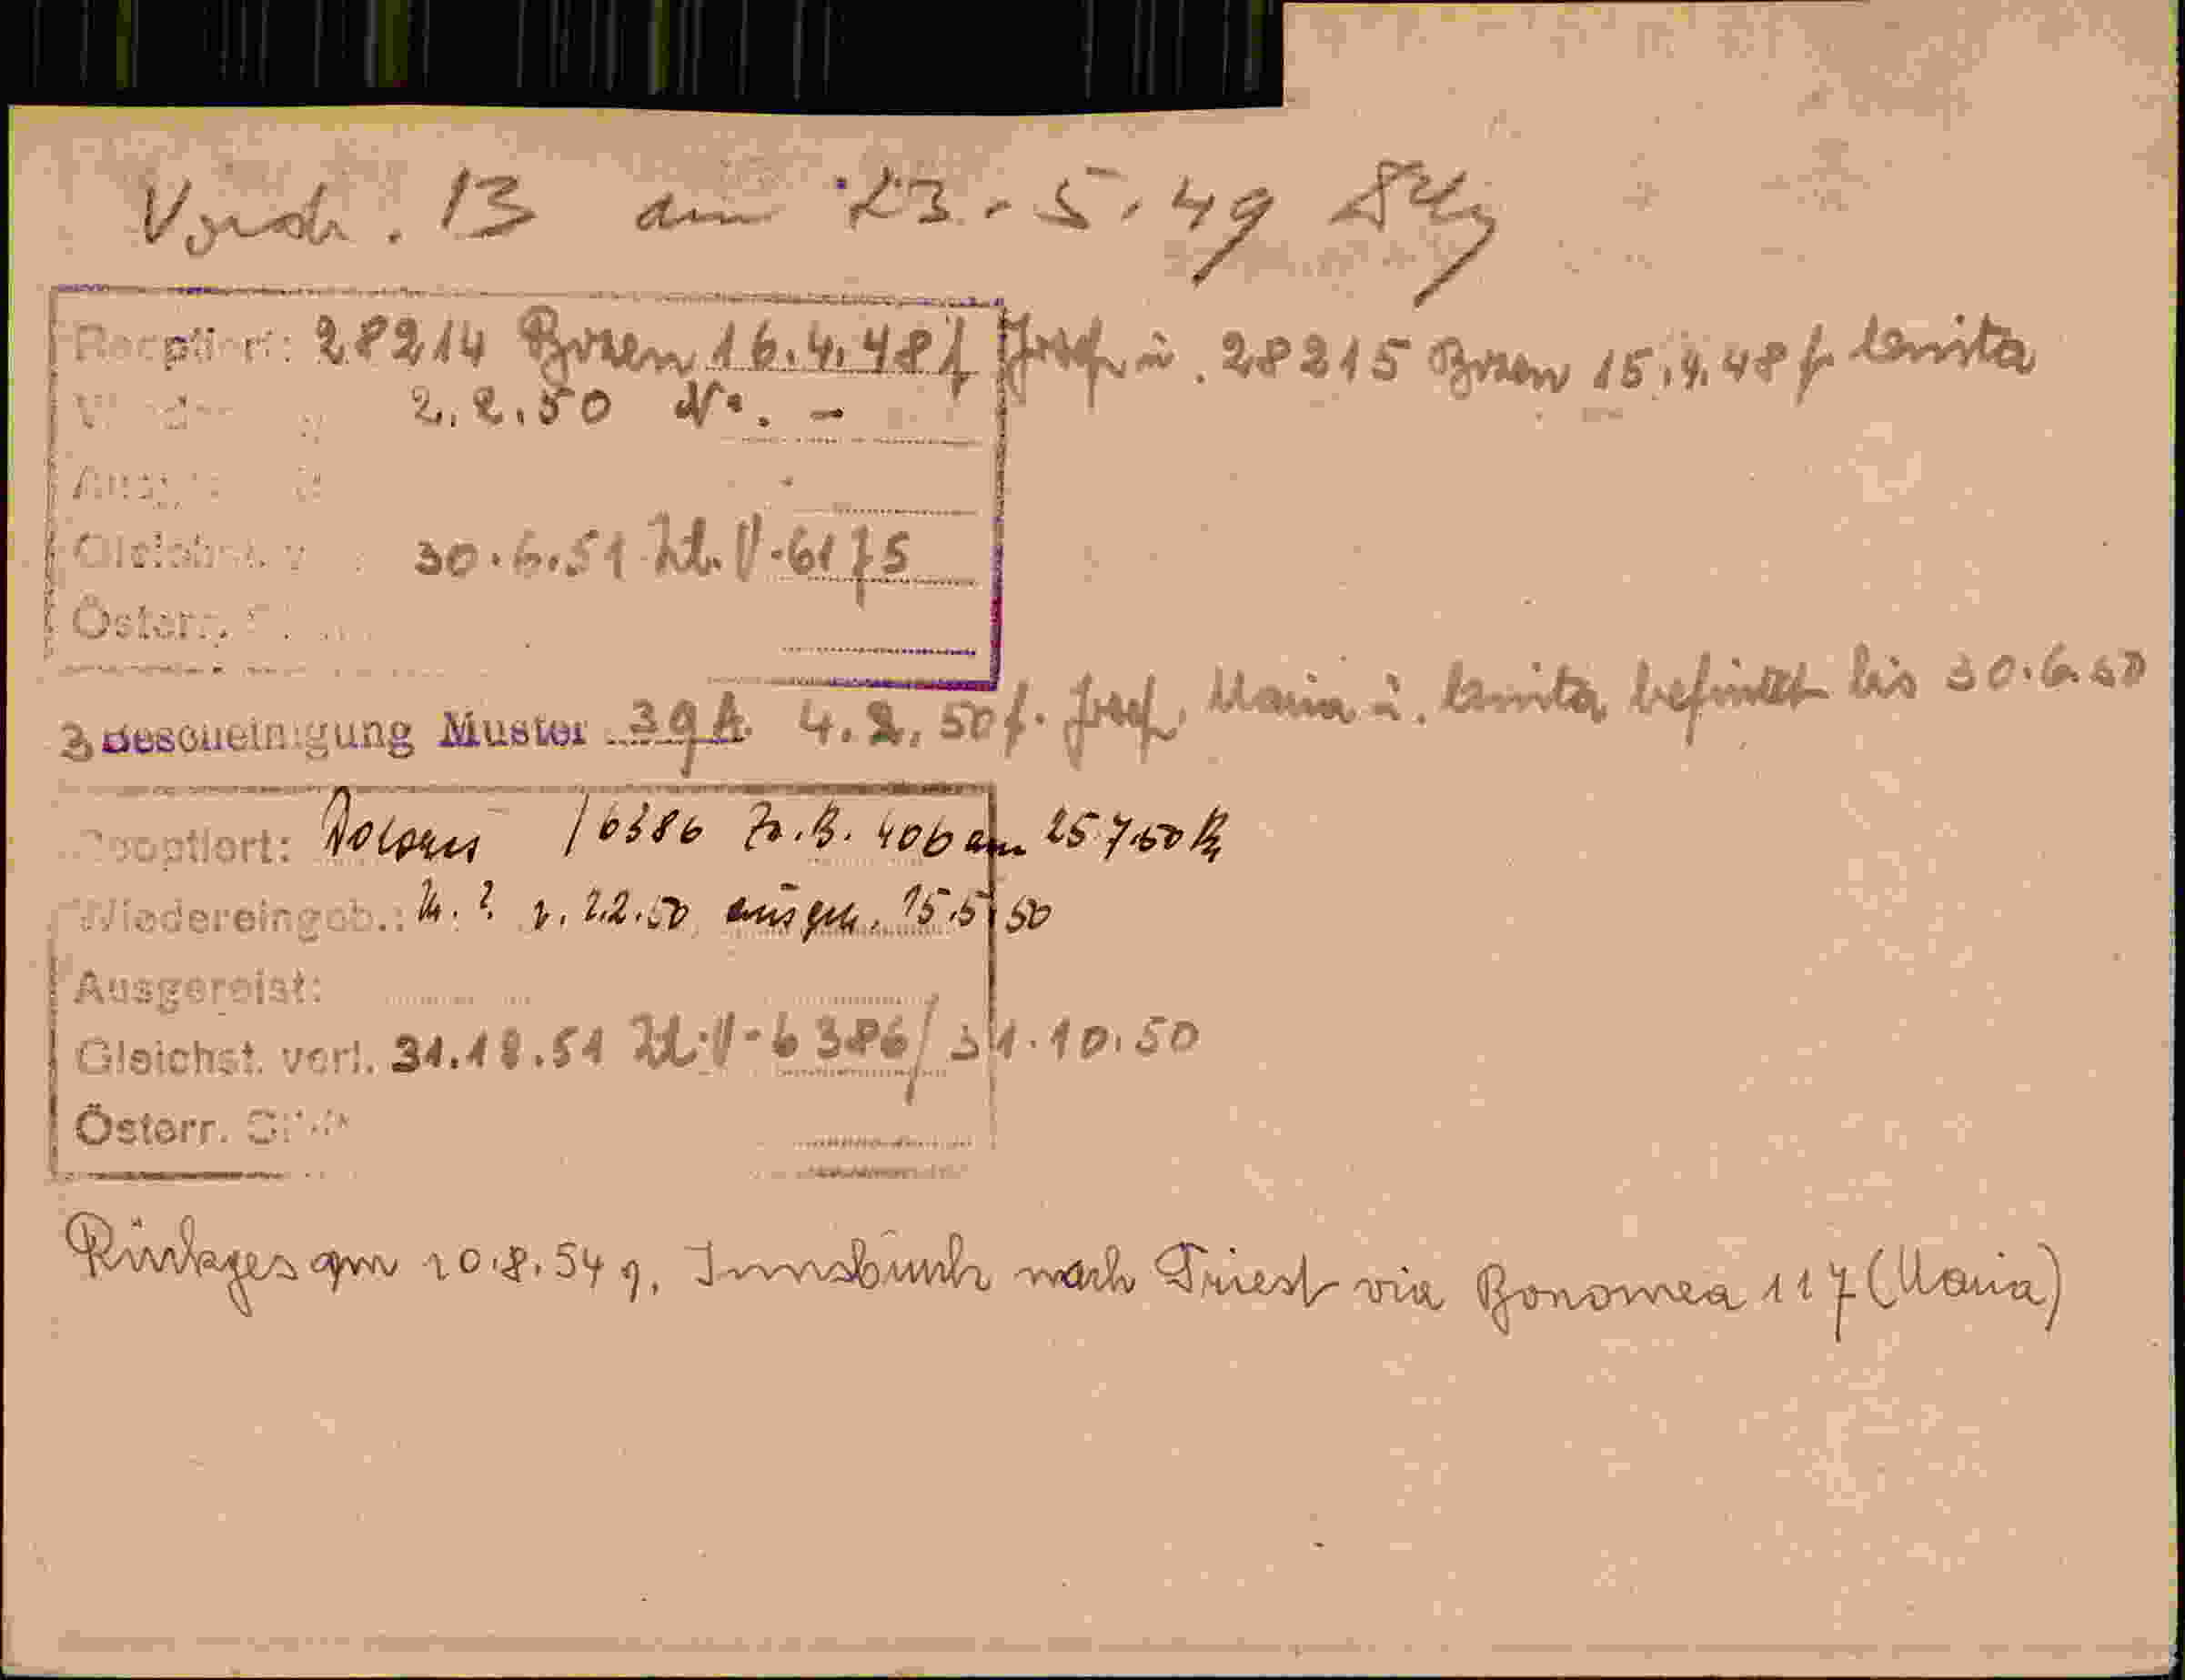 Vordr. 13 am 23.5.49
Reoptiert: 28214 Bozen 16.4.48 f. Josef u. 28215 Bozen 15.4.48 f.
2.2.50 No. -
30.6.51 Zl. V-6175
Österr.
Bescheinigung Muster 39A 4.2.50 f. Josef, Maria u. befristet bis 30.6.50
Reoptiert: 16386 406 am 25.7.50
Wiedereingeb.: v. 2.2.50 15.5.50
Ausgereist:
Gleichst. verl. 31.12.51 Zl. V-6386/31.10.50
Österr.
Rückges am 10.8.54 v. Innsbruck nach Triest via Bonomea 117 (Maria)